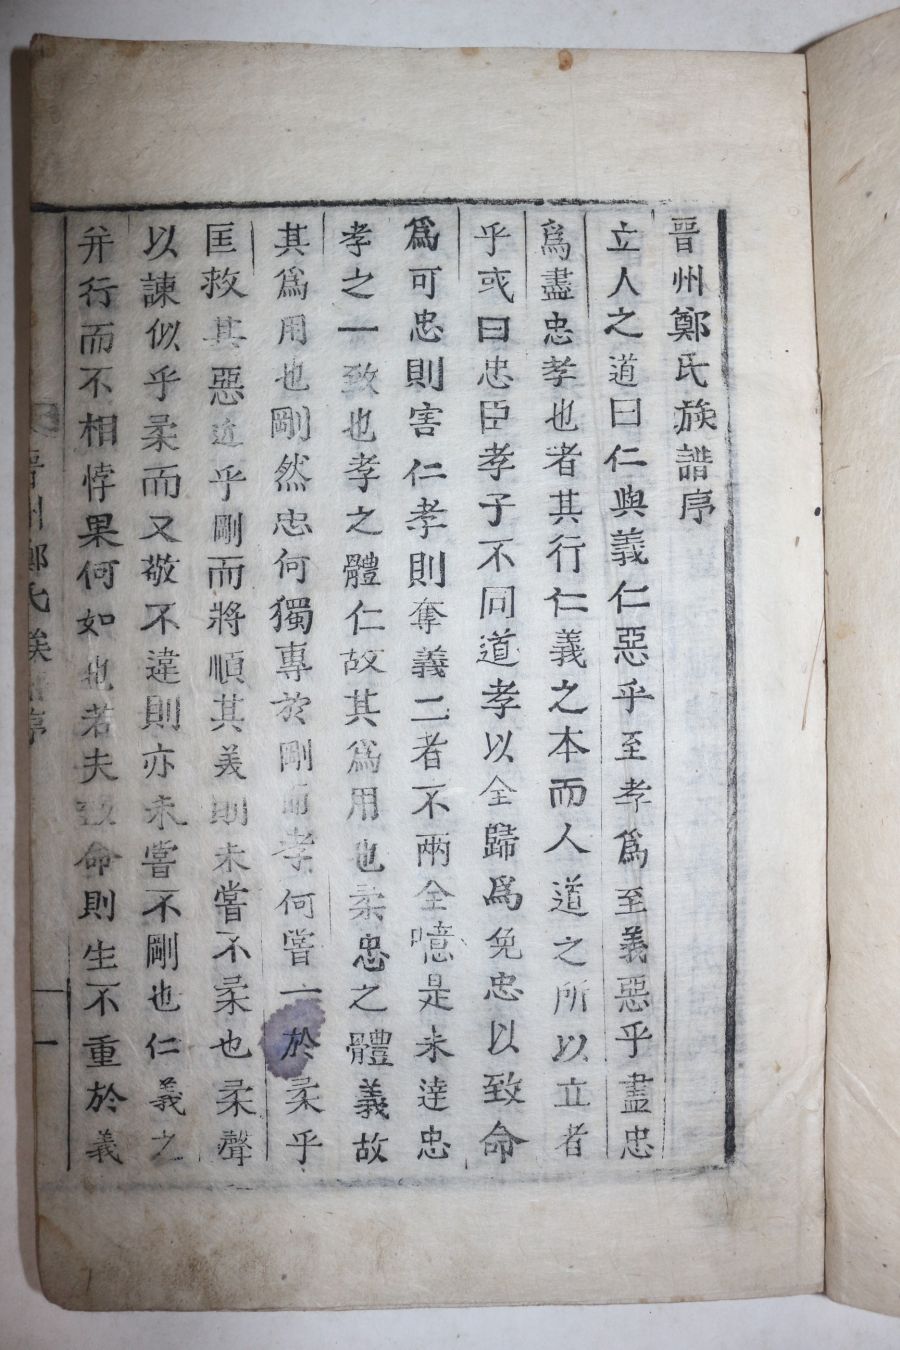 晋州鄭氏族譜序
立人之道曰仁與義仁惡乎至孝爲至義惡乎盡忠
爲盡忠孝也者其行仁義之本而人道之所以立者
乎或曰忠臣孝子不同道孝以全歸爲免忠以致命
爲可忠則害仁孝則奪義二者不兩全噫是未逹忠
孝之一致也孝之體仁故其爲用也柔忠之體義故
其爲用也剛然忠何獨專於剛而孝何嘗一於柔乎
匡救其惡近乎剛而將順其美則未嘗不柔也柔聲
以諫似乎柔而又敬不違則亦未嘗不剛也仁義之
并行而不相悖果何如也若夫致命則生不重於義
晋州鄭氏族譜序
一